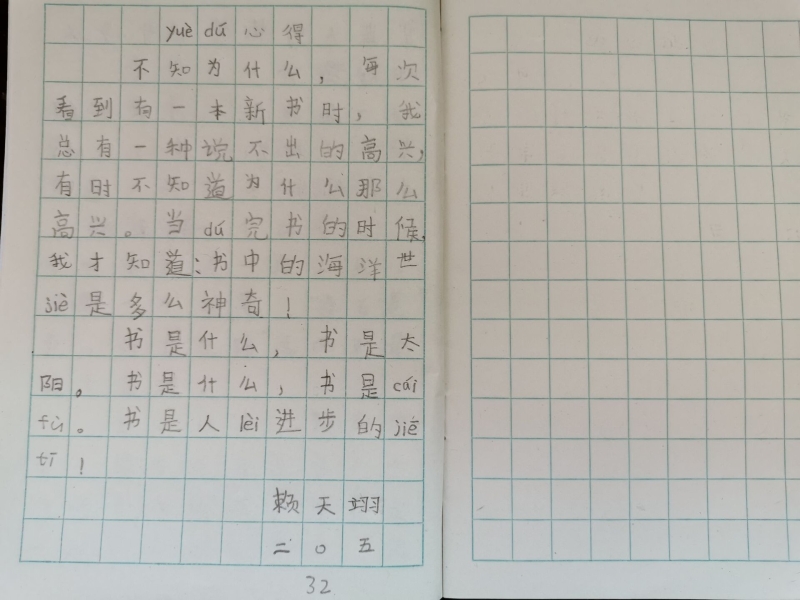 yuè dú 心得
不知为什么，每次
看到有一本新书时，我
总有一种说不出的高兴，
有时不知道为什么那么
高兴。当dú完书的时候，
我才知道：书中的海洋世
jiè是多么神奇！
书是什么，书是太
阳。书是什么，书是cái
fù。书是人lèi进步的jiē
tī！
赖天翊
二〇五
32